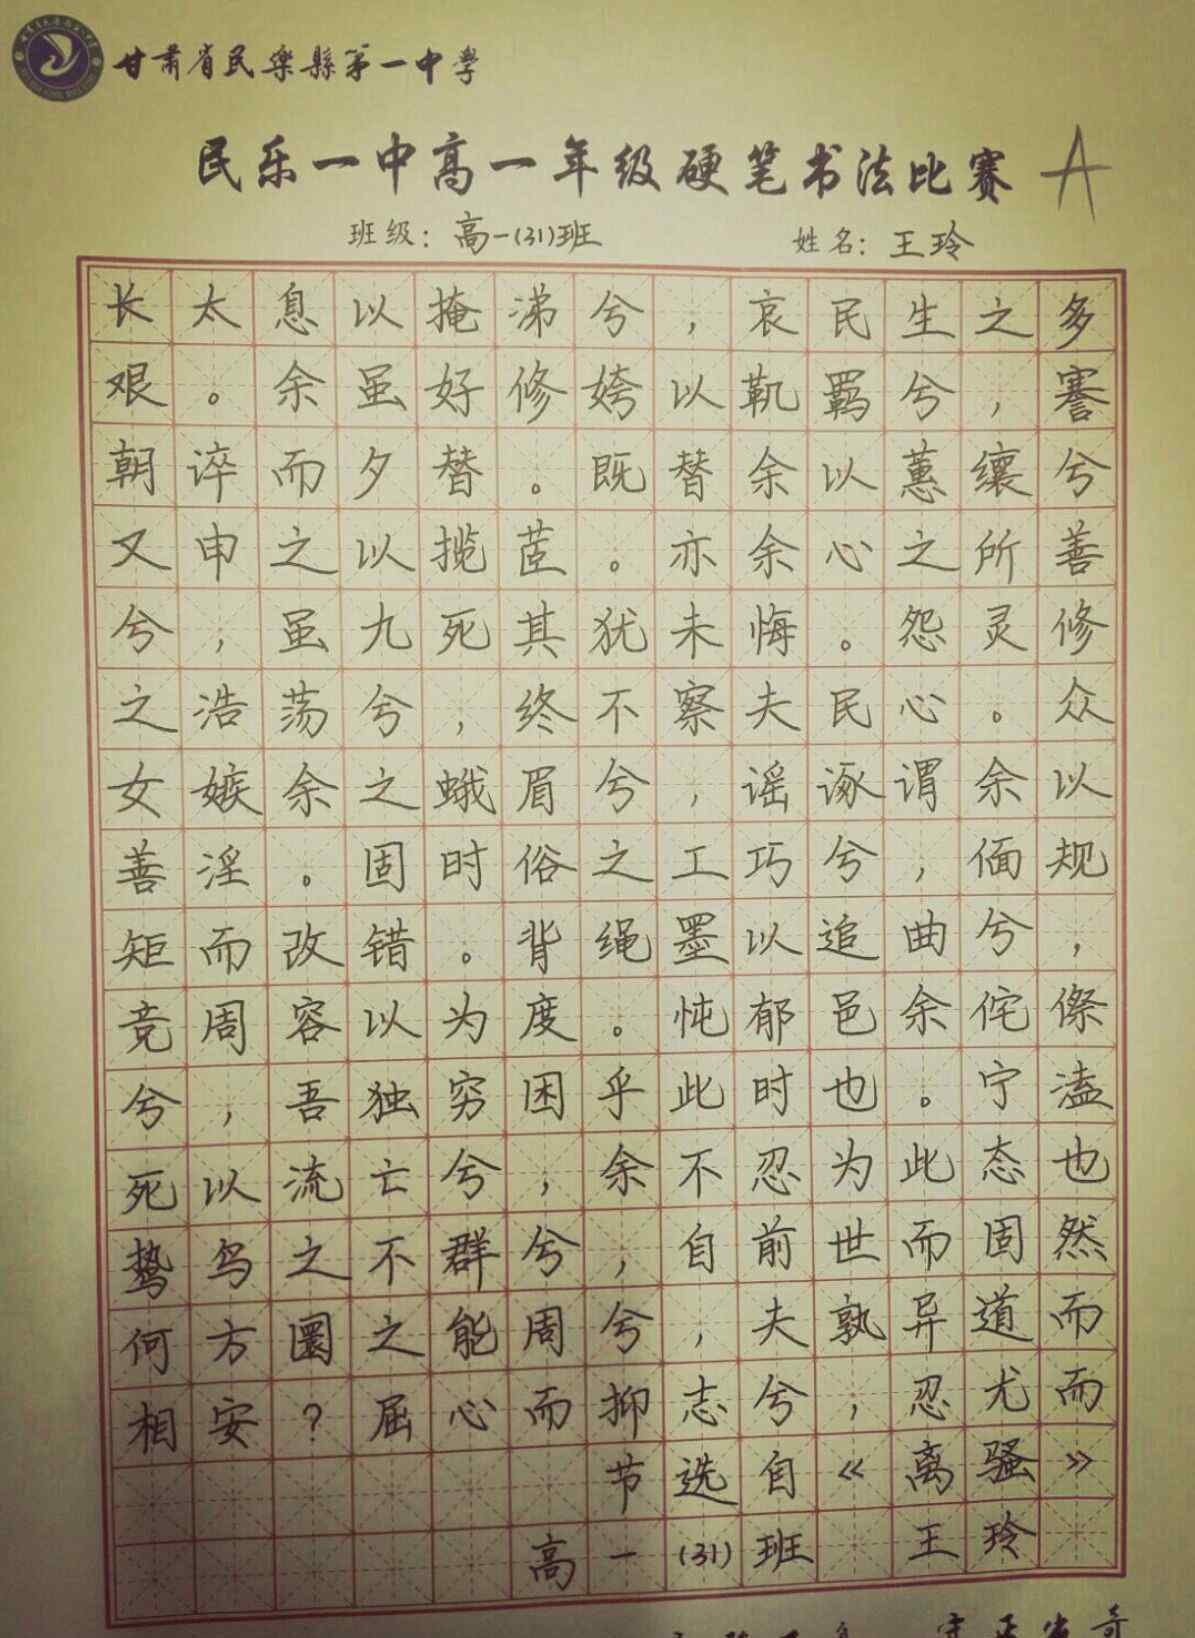 甘肃省民樂縣第一中學
民乐一中高一年级硬笔书法比赛 A
班级：高一(31)班 姓名：王玲
长太息以掩涕兮，哀民生之多
艰。余虽好修姱以鞿羁兮，謇
朝谇而夕替。既替余以蕙纕兮
又申之以揽茝。亦余心之所善
兮，虽九死其犹未悔。怨灵修
之浩荡兮，终不察夫民心。众
女嫉余之蛾眉兮，谣诼谓余以
善淫。固时俗之工巧兮，偭规
矩而改错。背绳墨以追曲兮，
竞周容以为度。忳郁邑余侘傺
兮，吾独穷困乎此时也。宁溘
死以流亡兮；余不忍为此态也
鸷鸟之不群兮，自前世而固然
何方圜之能周兮，夫孰异道而
相安？屈心而抑志兮；忍尤而
节选自《离骚》
高一(31)班 王玲